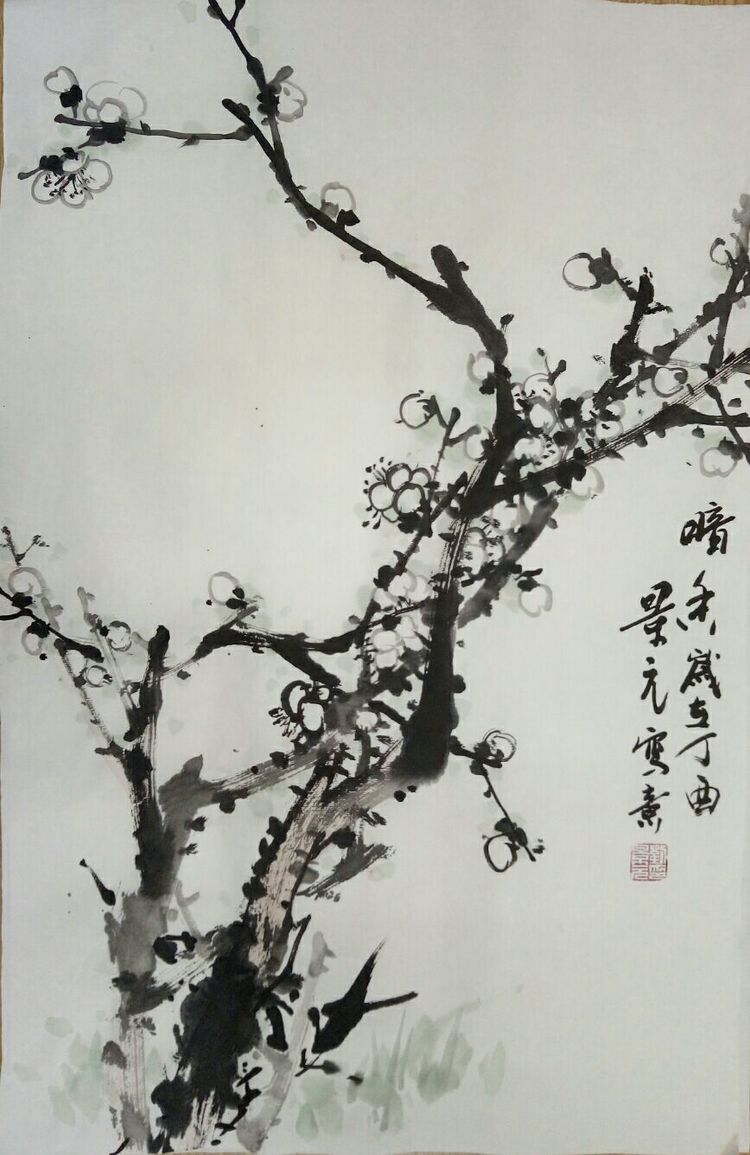 暗香歲在丁酉
景元寫意